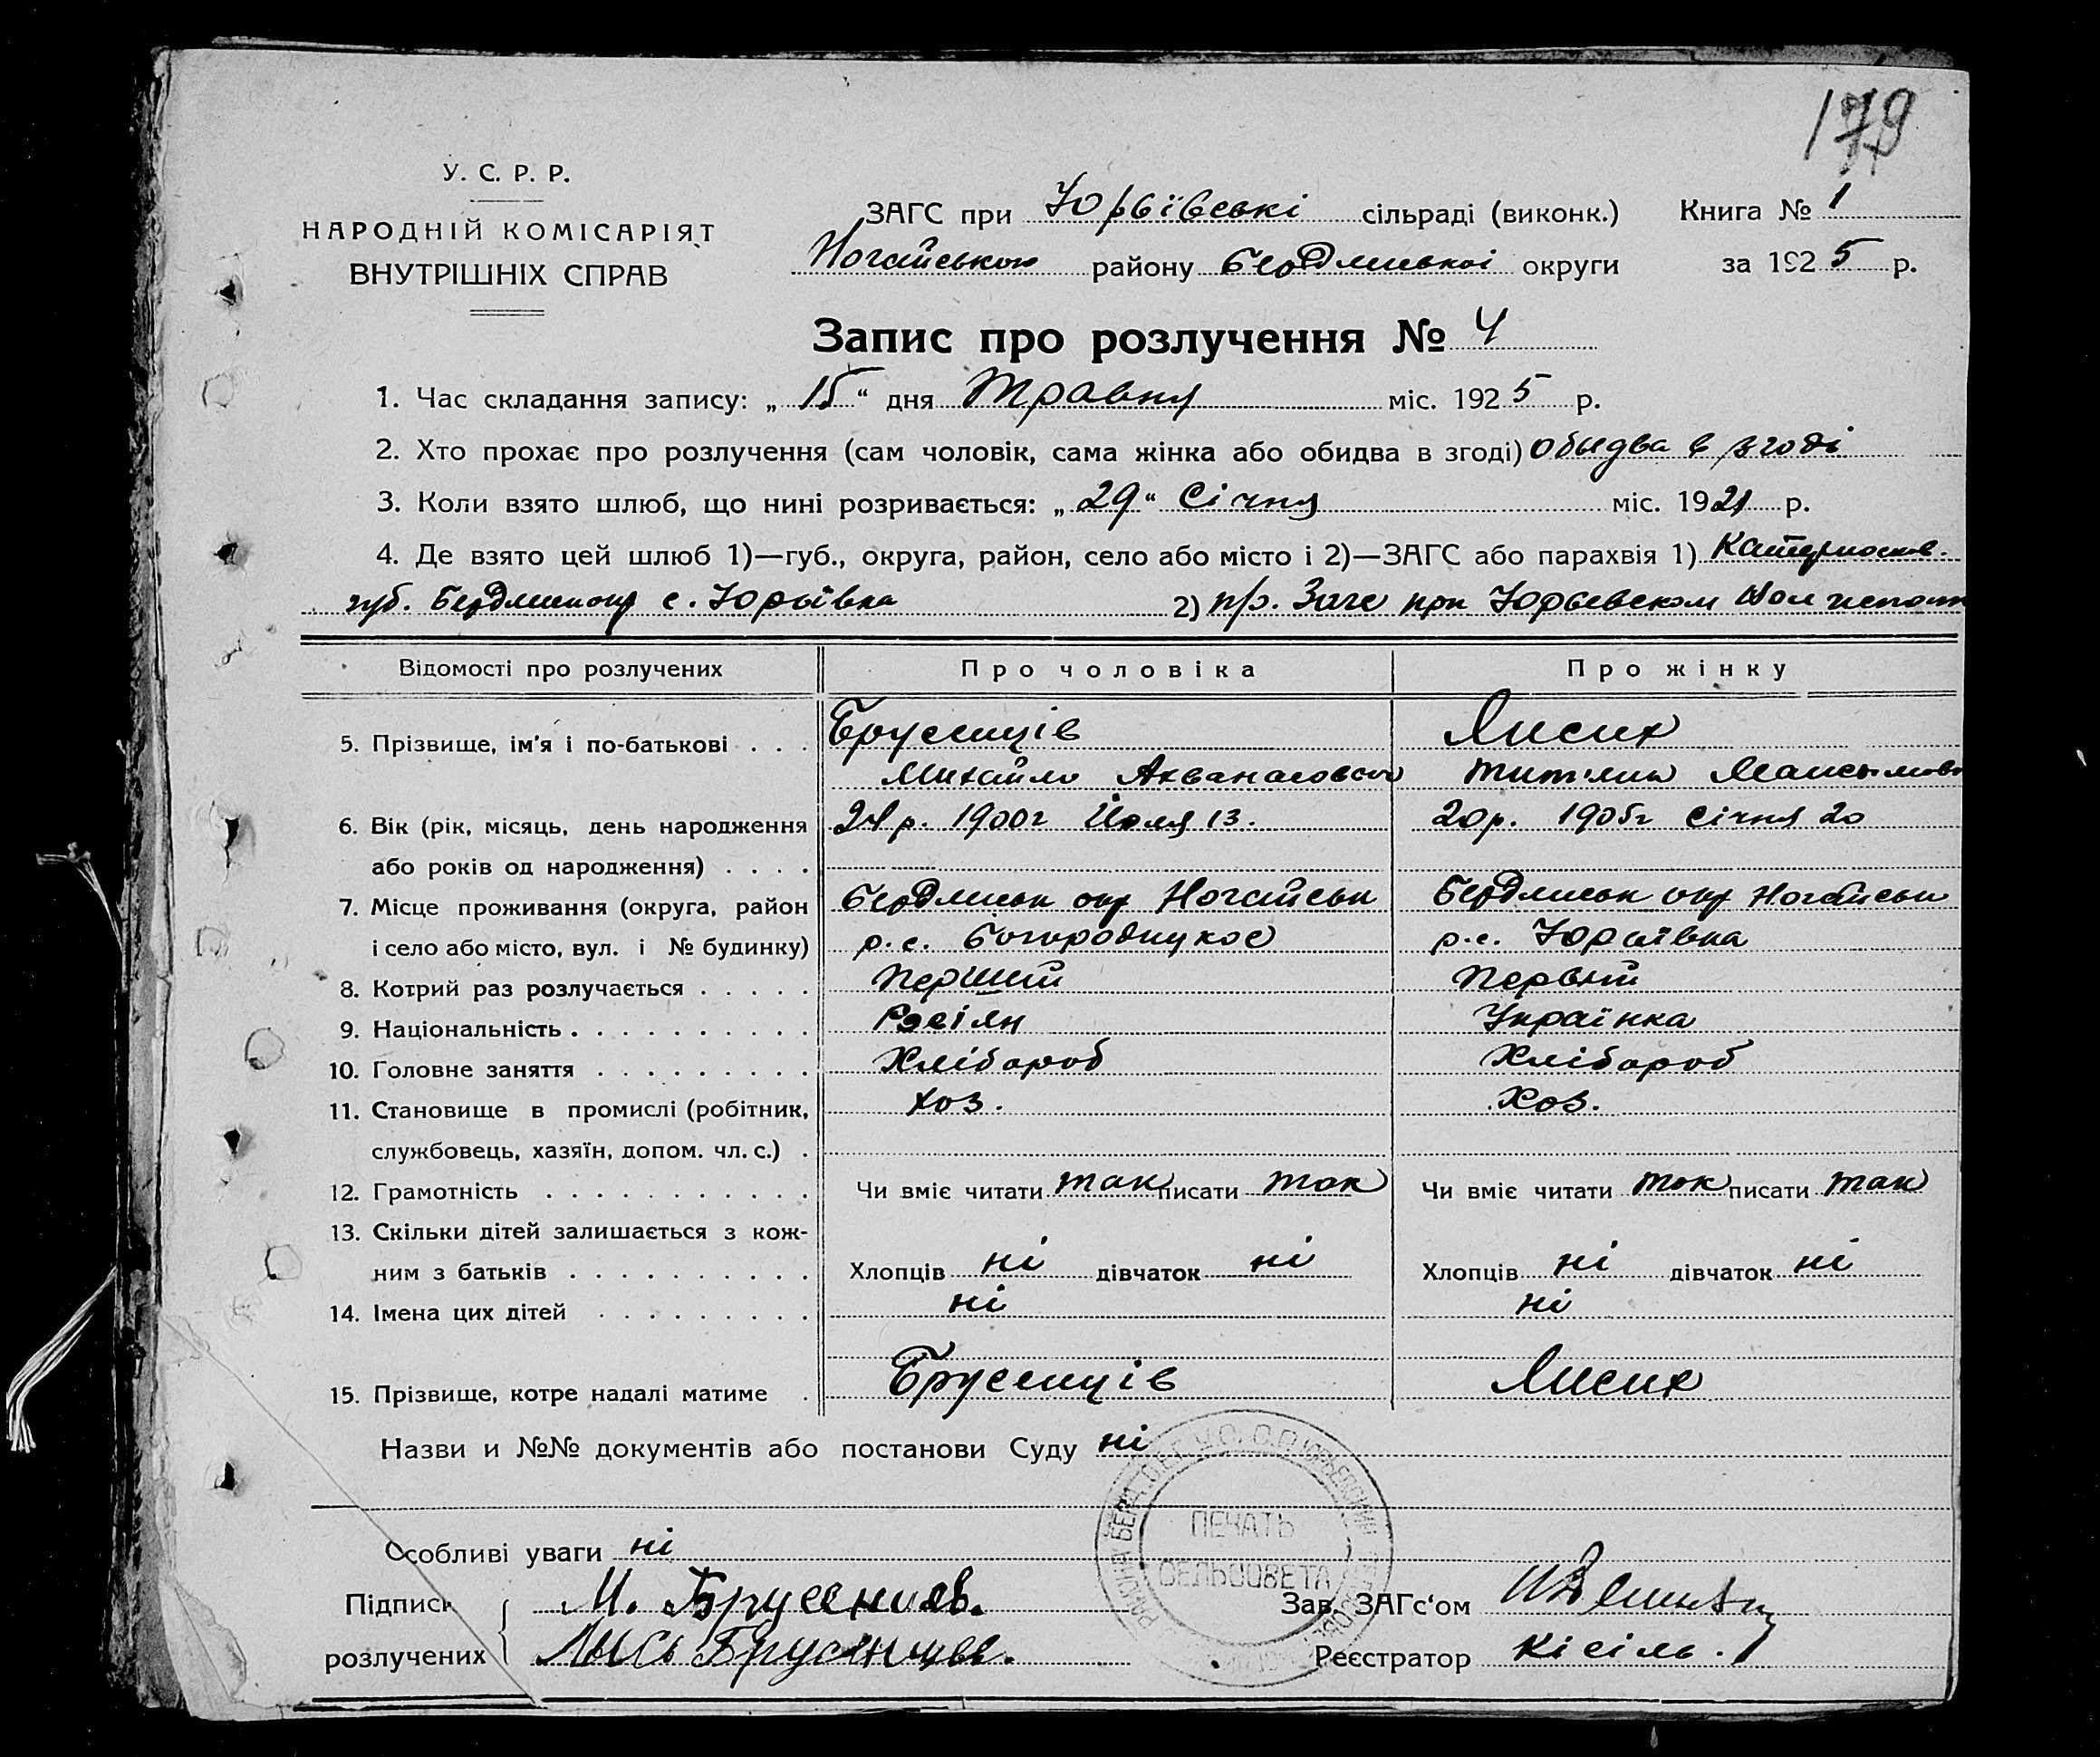 179
У. С. Р. Р.
НАРОДНІЙ КОМІСАРІЯТ
ВНУТРІШНІХ СПРАВ
ЗАГС при Юрьївські сільраді (виконк.) Книга № 1
Ногайського району Бердянської округи за 1925 р.
Запис про розлучення № 4
1. Час складання запису: „15“ дня Травня міс. 1925 р.
2. Хто прохає про розлучення (сам чоловік, сама жінка або обидва в згоді) обыдва в згоді
3. Коли взято шлюб, що нині розривається: „29“ Січня міс. 1921 р.
4. Де взято цей шлюб 1)—губ., округа, район, село або місто і 2)—ЗАГС або парахвія 1)
губ. с. Юрьївка 2) при Юрьевском
Відомості про розлучених Про чоловіка Про жінку
5. Прізвище, ім'я і по-батькові . . . Брусенців Лисих
Михайло
6. Вік (рік, місяць, день народження 24 р. 1900г Июля 13. 20 р. 1905г Січня 20
або років од народження) . . . .
7. Місце проживання (округа, район Бердянськ окр Ногайськ Бердянськ окр Ногайськ
і село або місто, вул. і № будинку) р. с. Богородицкое р. с. Юрьївка
8. Котрий раз розлучається . . . . . Перший Первый
9. Національність . . . . . . . . . . Росіян Українка
10. Головне заняття . . . . . . . . . Хлібороб Хлібороб
11. Становище в промислі (робітник, хоз. Хоз.
службовець, хазяїн, допом. чл. с.) .
12. Грамотність . . . . . . . . . . . Чи вміє читати так писати так Чи вміє читати так писати так
13. Скільки дітей залишається з кож-
ним з батьків . . . . . . . . . . Хлопців ні дівчаток ні Хлопців ні дівчаток ні
14. Імена цих дітей . . . . . . . . . ні ні
15. Прізвище, котре надалі матиме . Брусенців Лисих
Назви и №№ документів або постанови Суду ні
ПЕЧАТЬ
СЕЛЬСОВЕТА
Особливі уваги ні
Підписи М. Зав. ЗАГс‘ом
розлучених Реєстратор Кісіль.